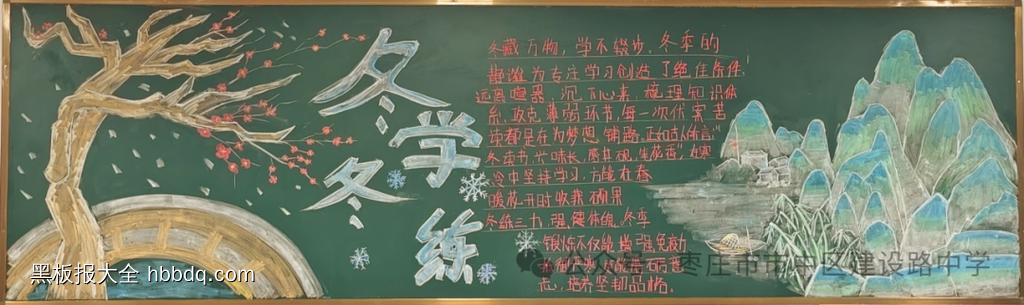 冬学
冬练
冬藏万物，学不辍步，冬季的
静谧为专注学习创造了绝佳条件，
远离喧嚣，沉下心来，梳理知识体
系，攻克薄弱环节，每一次伏案苦
读都是在为梦想铺路，正如古人所言"
冬季书
冷中坚持学习，方能在春
暖花开时收获硕果
冬练三九，强健体魄，冬季
锻炼不仅能
志，培养坚韧品格。
黑板报大全 hbbdq.com
公众号 枣庄市市中区建设路中学